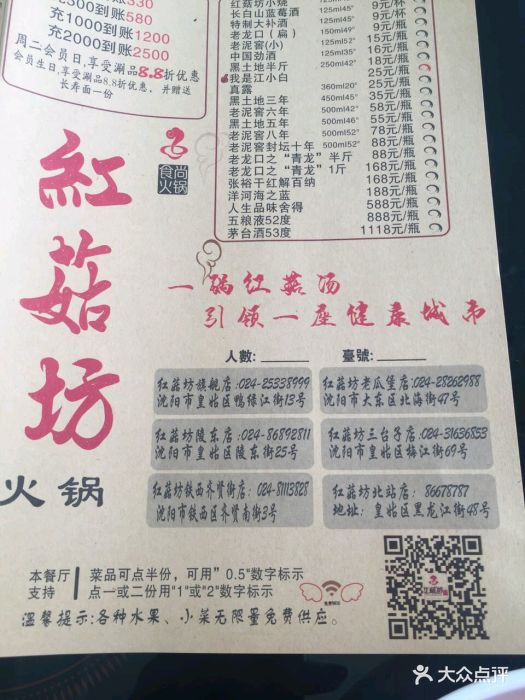 充300到账330
充500到账580
充1000到账1200
充2000到账2500
周二会员日,享受涮品8.8折优惠
会员生日,享受涮品8.8折优惠,并赠送
长寿面一份
红菇坊小烧 125ml45° 9元/杯
长白山蓝莓酒 9元/杯
特制大补酒 125ml45° 9元/杯
老龙口（扁） 150ml49° 12元/瓶
老泥窖(小) 125ml52° 15元/瓶
中国劲酒 125ml35° 16元/瓶
黑土地半斤 250ml42° 18元/瓶
我是江小白 25元/瓶
真露 360ml20° 25元/瓶
黑土地三年 450ml45° 35元/瓶
老泥窖六年 500ml42° 58元/瓶
黑土地五年 500ml46° 55元/瓶
老泥窖八年 500ml52° 78元/瓶
老泥窖封坛十年 500ml52° 88元/瓶
老龙口之“青龙”半斤 88元/瓶
老龙口之“青龙”1斤 168元/瓶
张裕干红解百纳 168元/瓶
洋河海之蓝 188元/瓶
人生品味舍得 588元/瓶
五粮液52度 888元/瓶
茅台酒53度 1118元/瓶
食尚
火锅
紅菇坊
火锅
一锅红菇汤
引领一座健康城市
人數: 臺號:
红菇坊旗舰店:024-25338999
沈阳市皇姑区鸭绿江街13号
红菇坊老瓜堡店:024-28262988
沈阳市大东区北海街47号
红菇坊陵东店:024-86892811
沈阳市皇姑区陵东街25号
红菇坊三台子店:024-31636853
沈阳市皇姑区梅江街69号
红菇坊铁西齐贤街店:024-81113828
沈阳市铁西区齐贤南街3号
红菇坊北站店:86678787
地址:皇姑区黑龙江街48号
本餐厅
支持
菜品可点半份，可用”0.5“数字标示
点一或二份用"1"或"2"数字标示
温馨提示:各种水果、小菜无限量免费供应。
大众点评